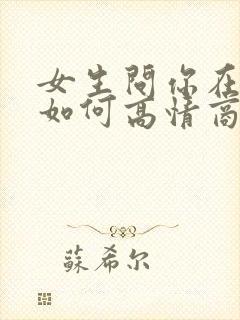 女生問你在
如何高情商
蘇希尔